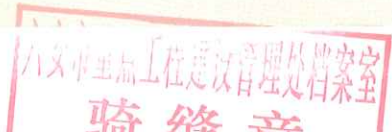 六安市重点工程建设管理处档案室
骑缝章